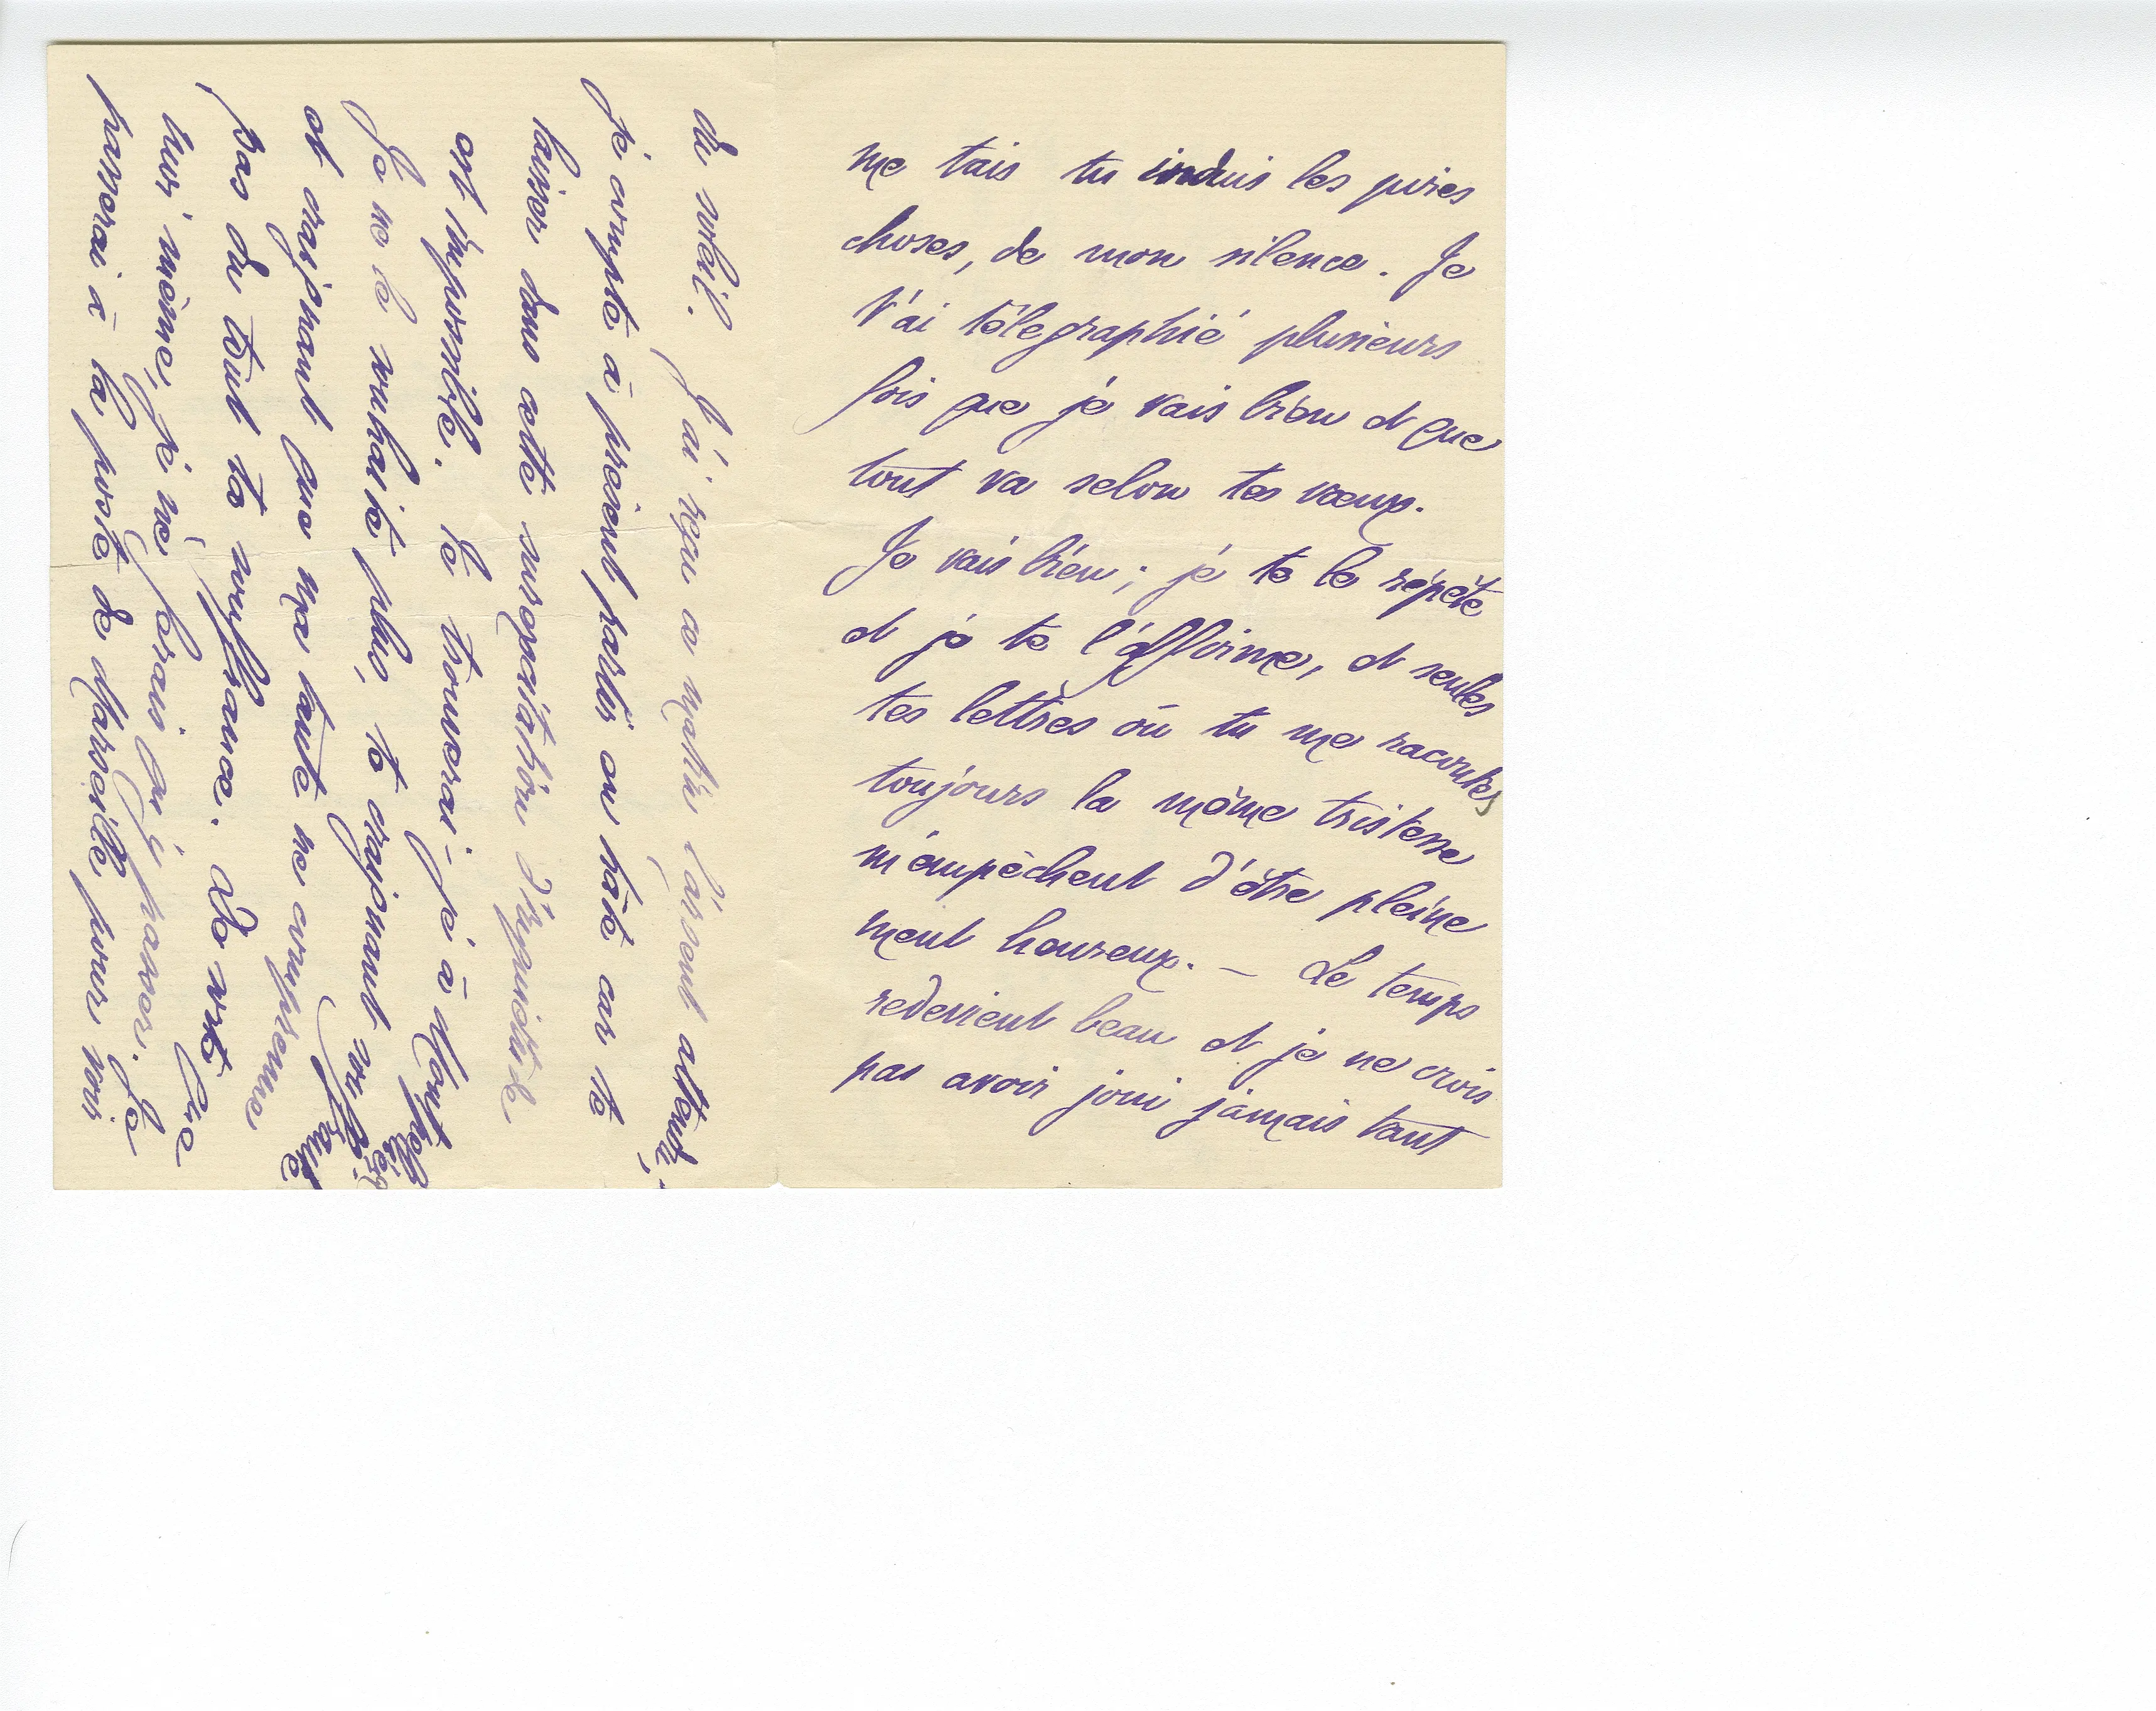 me tais tu induis les pires
choses, de mon silence. Je
t'ai télegraphié plusieurs
fois que je vais bien et que
tout va selon tes vœux.
Je vais bien ; je te le répète
et je te l'affirme, et seules
tes lettres où tu me racontes
toujours la même tristesse
m'empêchent d'être pleine
ment heureux. — Le temps
redevient beau et je ne crois
pas avoir joui jamais tant
du soleil. J'ai reçu ce matin l'argent attendu,
je compte à présent partir en hâte car te
laisser dans cette surexcitation d'inquiétude
est impossible. Te trouverai-je à Montpellier
Je ne le souhaite plus, te craignant
et craignant que ma tante ne comprenne
pas du tout ta souffrance. De sorte que
moi même, je ne ferais qu'y passer. Je
passerai à la poste de Marseille pour voir